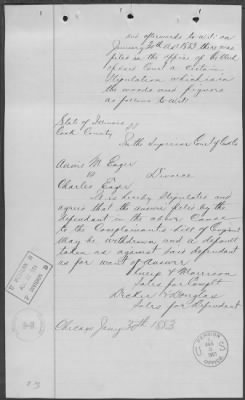 and afterwards to wit: on
January 30th AD 1883 there was
filed in the office of the Clerk
of said Court a certain
Stipulation which is in
the words and figures
as follows to wit:
State of Illinois
Cook County SS
In the Superior Court of Cook Co
M. Eager
vs Divorce
Charles Eager
It is hereby Stipulated and
agreed that the answer filed by the
defendant in the above Cause
to the Complainants bill of Complaint
May be withdrawn and a default
taken as against Said defendant
as for want of Answer
& Morrison
Sols for Complt
Decker & Douglas
Sols for Defendant
Chicago Jany 30th 1883
PENSION
U S
OFFICE